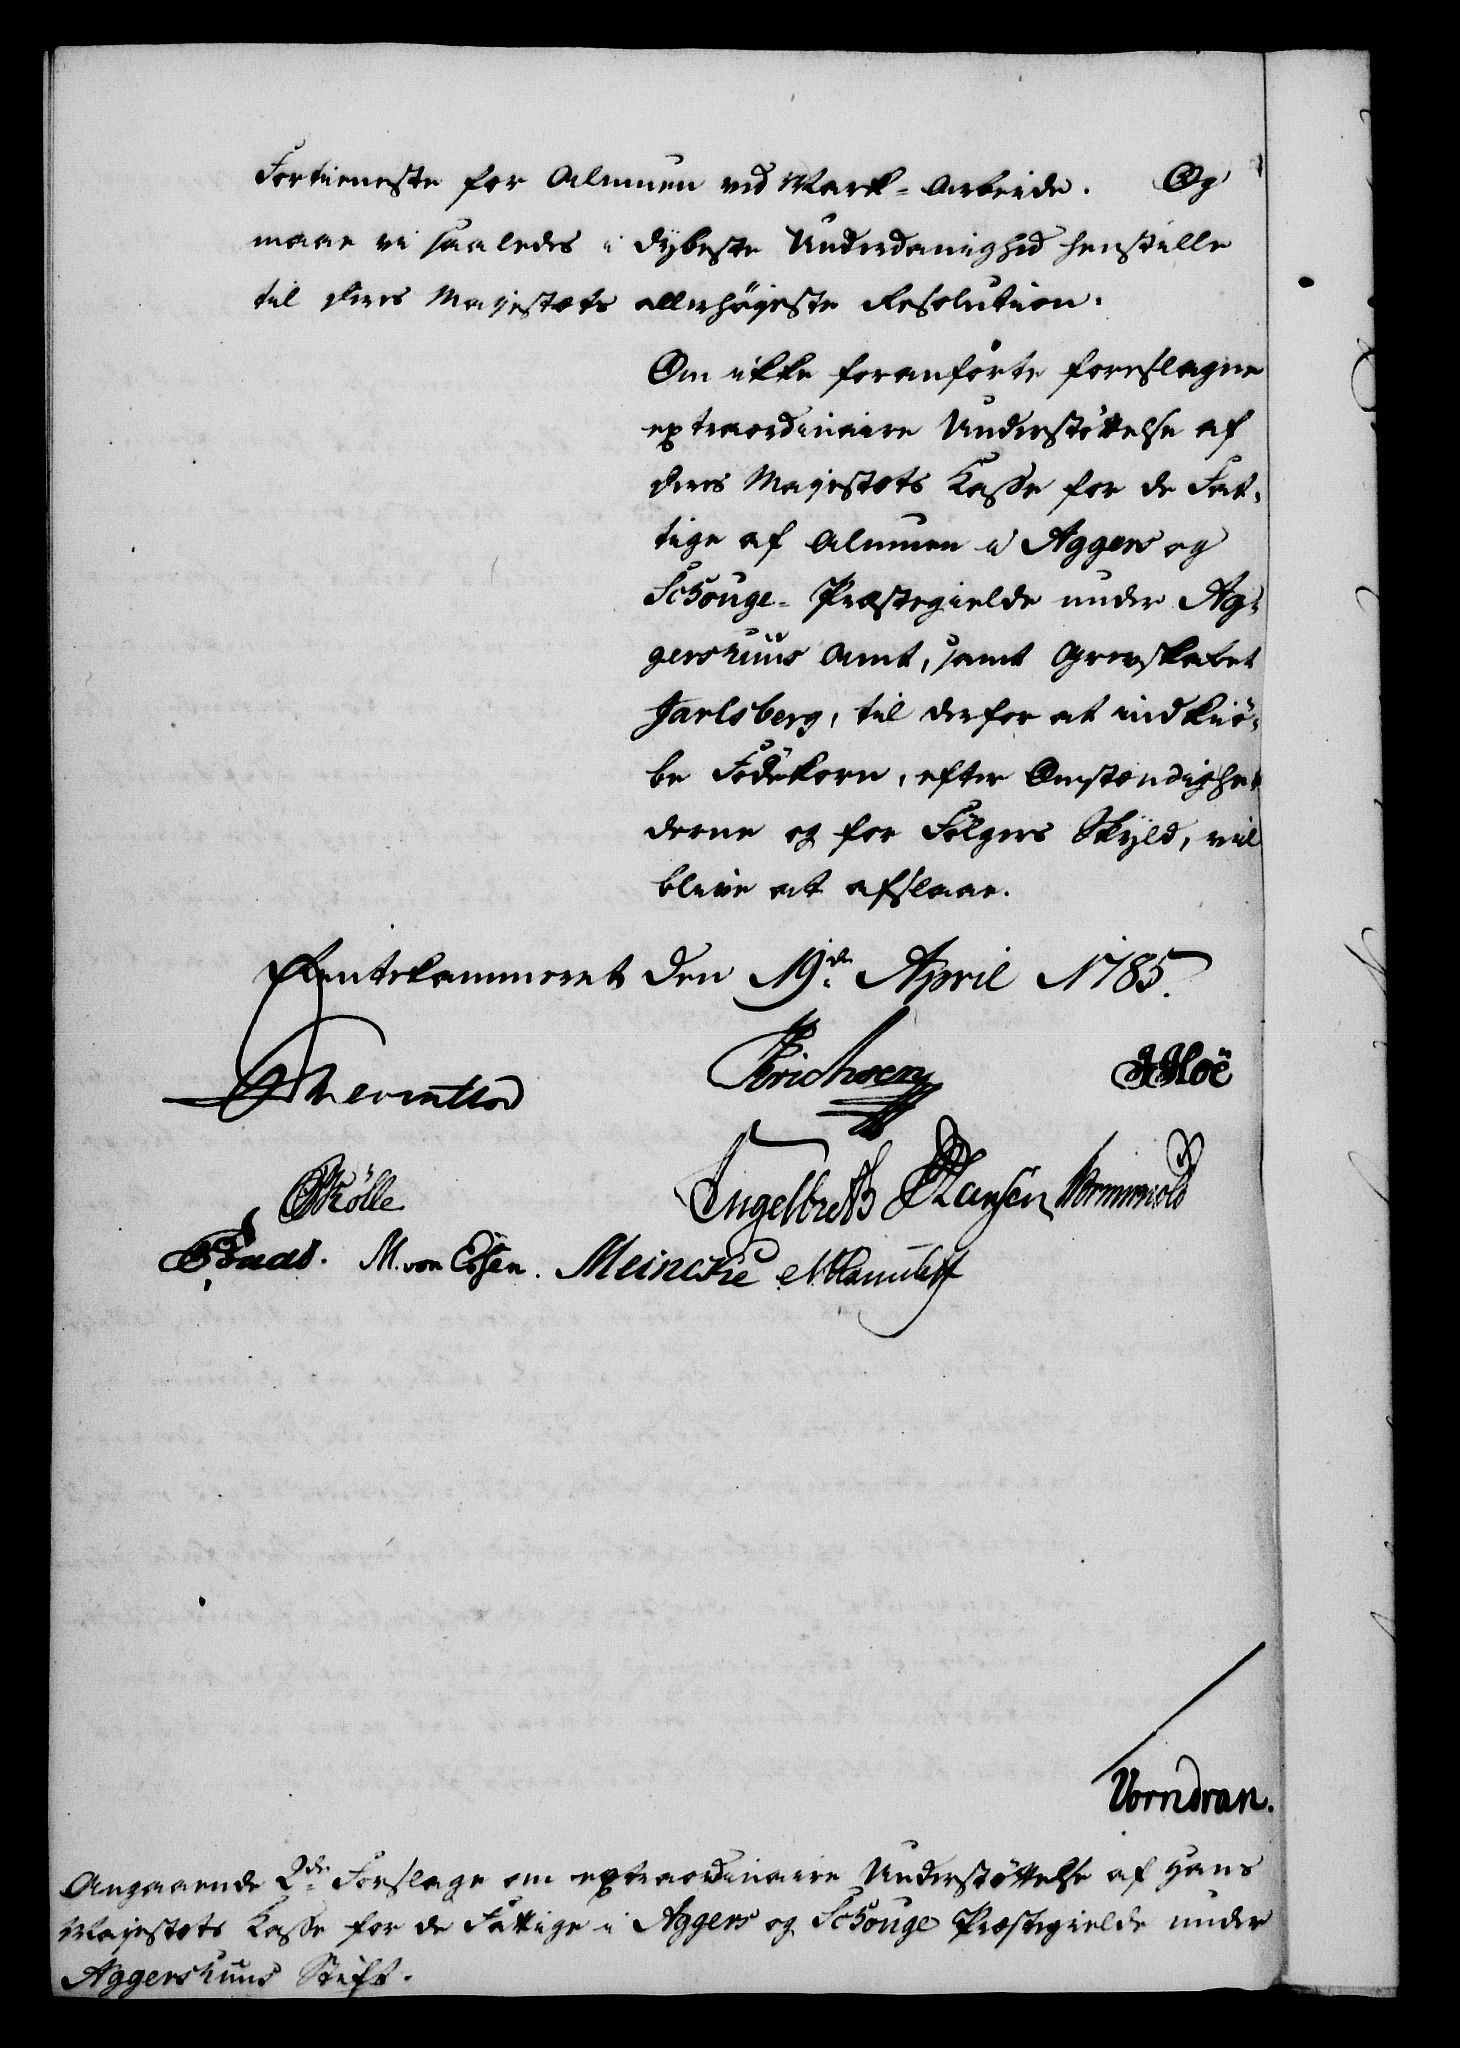 Fortieneste for Almuen ved Mark-Arbeide. Og
maae vi saaledes i dybeste Underdanighed henstille
til Deres Majestæts allerhöyeste Resolution.
Om ikke foranförte foreslagne
extraordinaire Understöttelse af
Deres Majestæts Kasse for de Fat-
tige af Almuen i Aggers og
Schouge-Præstegielde under Ag-
gershuus Amt, samt Grevskabet
Jarlsberg, til derfor at indkiö-
be Födekorn, efter Omstændighe-
derne og for Fölgers Skyld, vil
blive at afslaae.
Rentekammeret den 19de April 1785.
Erichsen
Mölle
Engelbreth Hansen Wormwold
M. von Essen. Meincke
Vorndran.
Angaaende 2de Forslage om extraordinaire Understöttelse af Hans
Majestæts Kasse for de Fattige i Aggers og Schouge Præstegielde under
Aggershuus Stift.